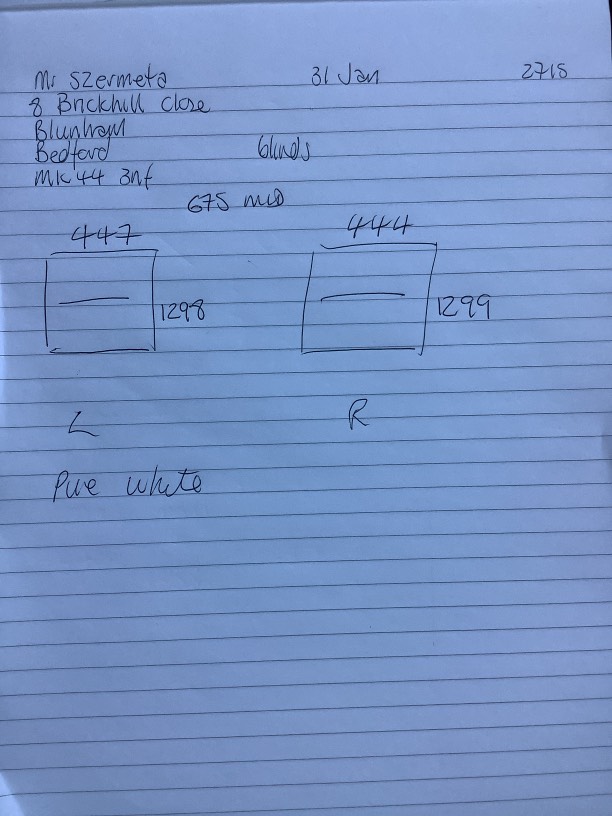 Mr Szermeta 31 Jan 2715
8 Brickhill Close
Blunham
Bedford blinds
MK44 3nf
675 mid
447 444
1298 1299
L R
Pure white